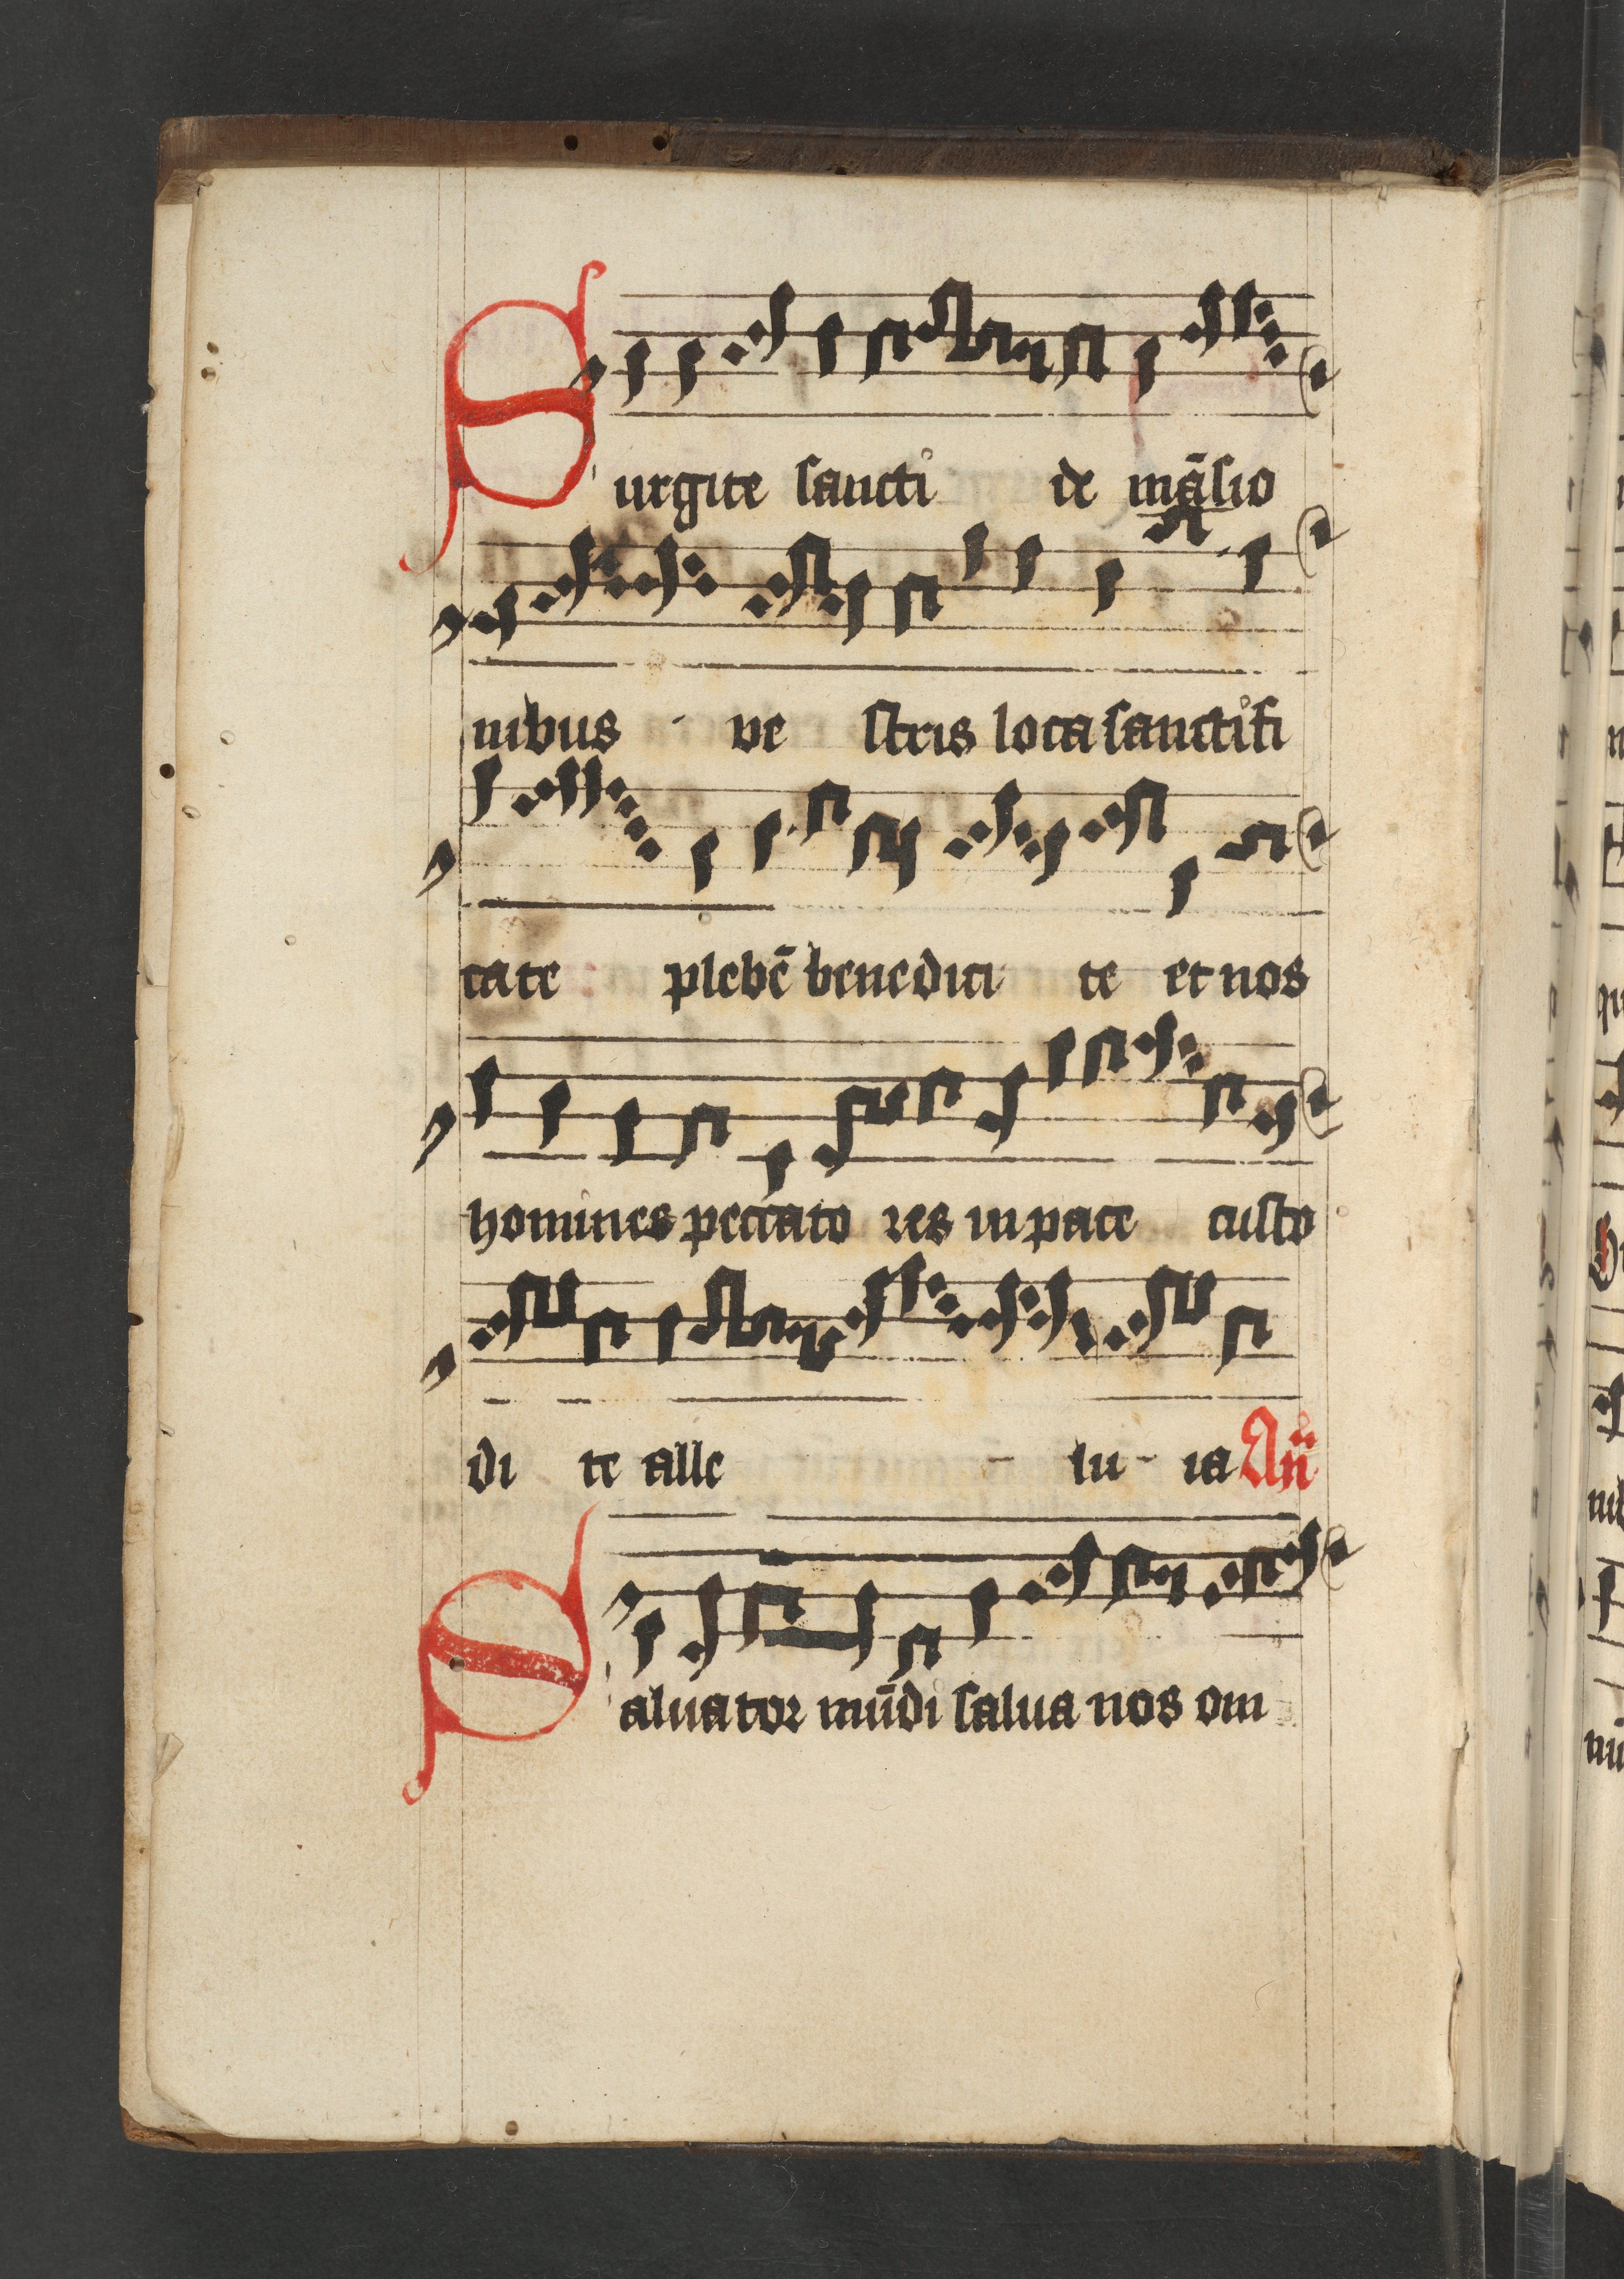 Surgite sancti de māsio
nibus - ve stris loca sanctifi
cate plebē benedici te et nos
homines peccato res in pace custo
di te alle - lu - ia An̄
Saluator mūdi salua nos om